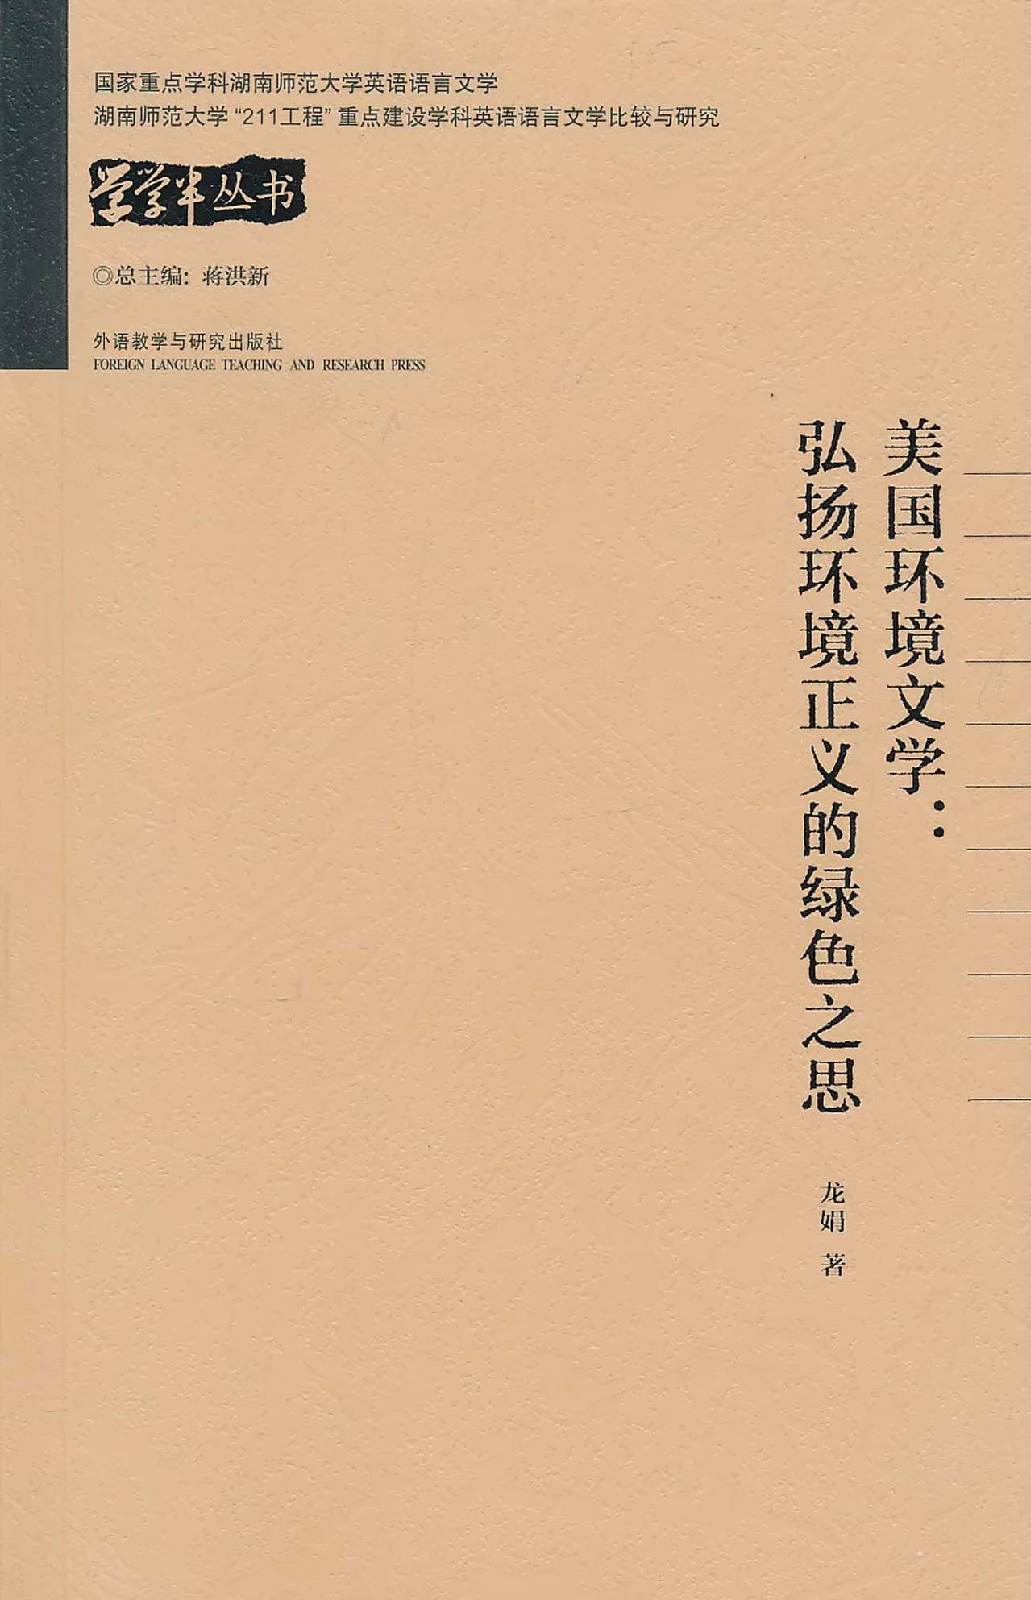 国家重点学科湖南师范大学英语语言文学
湖南师范大学“211工程”重点建设学科英语语言文学比较与研究
学学半丛书
◎总主编：蒋洪新
外语教学与研究出版社
FOREIGN LANGUAGE TEACHING AND RESEARCH PRESS
美国环境文学：
弘扬环境正义的绿色之思
龙娟 著